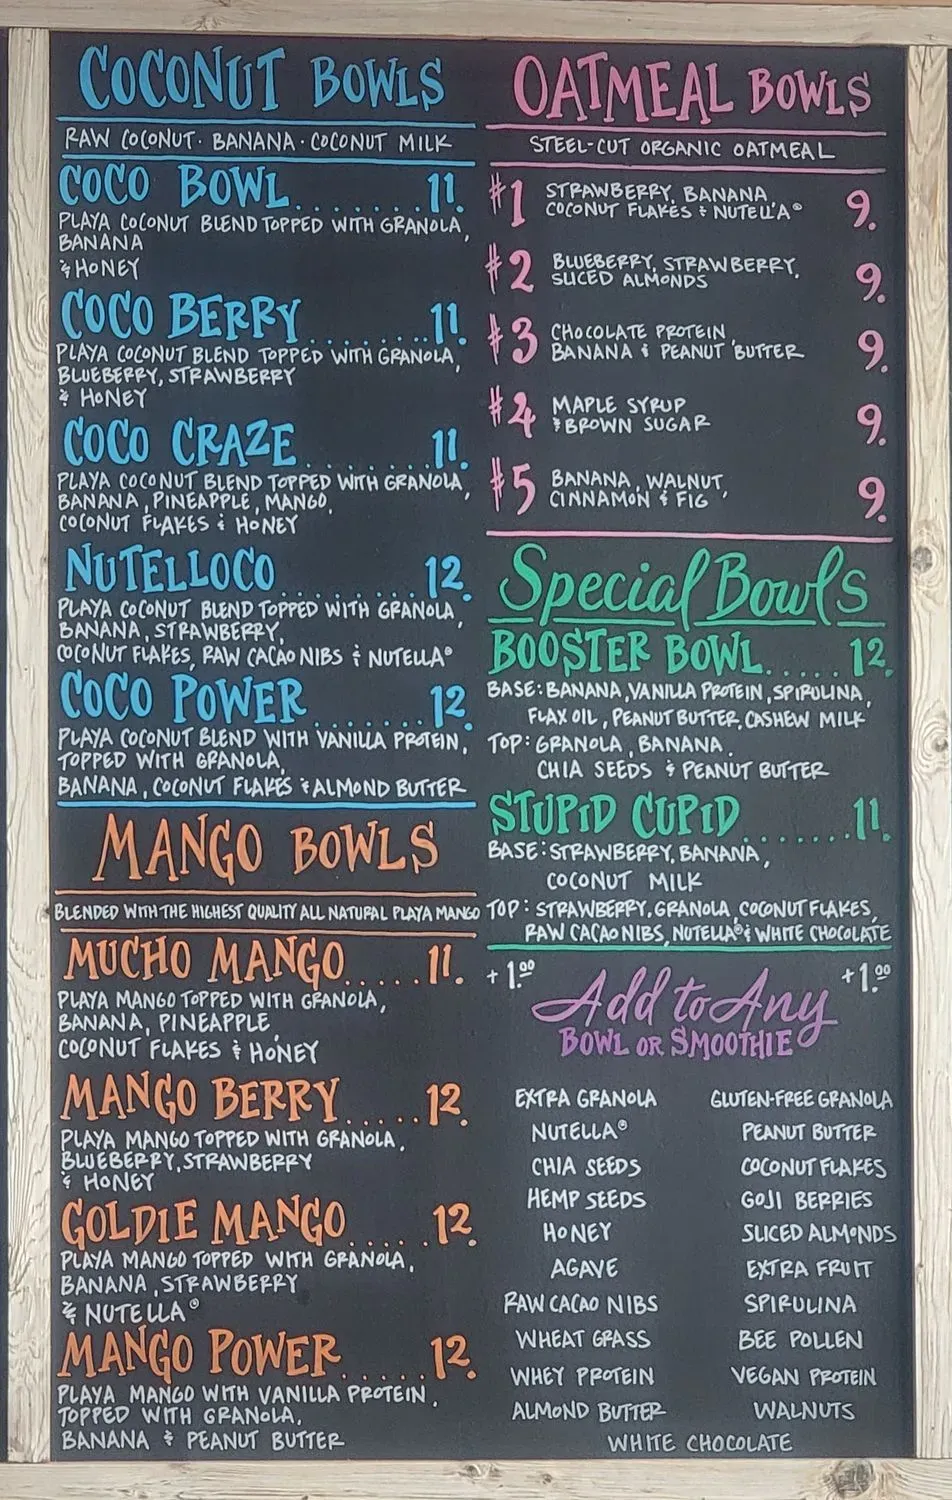 COCONUT BOWLS
RAW COCONUT · BANANA · COCONUT MILK
COCO BOWL........11.
PLAYA COCONUT BLEND TOPPED WITH GRANOLA,
BANANA
& HONEY
COCO BERRY........11.
PLAYA COCONUT BLEND TOPPED WITH GRANOLA,
BLUEBERRY, STRAWBERRY
& HONEY
COCO CRAZE........11.
PLAYA COCONUT BLEND TOPPED WITH GRANOLA,
BANANA, PINEAPPLE, MANGO,
COCONUT FLAKES & HONEY
NUTELLOCO........12.
PLAYA COCONUT BLEND TOPPED WITH GRANOLA,
BANANA, STRAWBERRY,
COCONUT FLAKES, RAW CACAO NIBS & NUTELLA®
COCO POWER.......12.
PLAYA COCONUT BLEND WITH VANILLA PROTEIN,
TOPPED WITH GRANOLA,
BANANA, COCONUT FLAKES & ALMOND BUTTER
MANGO BOWLS
BLENDED WITH THE HIGHEST QUALITY ALL NATURAL PLAYA MANGO
MUCHO MANGO.....11.
PLAYA MANGO TOPPED WITH GRANOLA,
BANANA, PINEAPPLE,
COCONUT FLAKES & HONEY
MANGO BERRY.....12.
PLAYA MANGO TOPPED WITH GRANOLA,
BLUEBERRY, STRAWBERRY
& HONEY
GOLDIE MANGO.....12.
PLAYA MANGO TOPPED WITH GRANOLA,
BANANA, STRAWBERRY
& NUTELLA®
MANGO POWER.....12.
PLAYA MANGO WITH VANILLA PROTEIN,
TOPPED WITH GRANOLA,
BANANA & PEANUT BUTTER
OATMEAL BOWLS
STEEL-CUT ORGANIC OATMEAL
#1 STRAWBERRY, BANANA, 9.
COCONUT FLAKES & NUTELLA®
#2 BLUEBERRY, STRAWBERRY, 9.
SLICED ALMONDS
#3 CHOCOLATE PROTEIN, 9.
BANANA & PEANUT BUTTER
#4 MAPLE SYRUP 9.
& BROWN SUGAR
#5 BANANA, WALNUT, 9.
CINNAMON & FIG
Special Bowls
BOOSTER BOWL.....12.
BASE: BANANA, VANILLA PROTEIN, SPIRULINA,
FLAX OIL, PEANUT BUTTER, CASHEW MILK
TOP: GRANOLA, BANANA,
CHIA SEEDS & PEANUT BUTTER
STUPID CUPID.......11.
BASE: STRAWBERRY, BANANA,
COCONUT MILK
TOP: STRAWBERRY, GRANOLA, COCONUT FLAKES,
RAW CACAO NIBS, NUTELLA® & WHITE CHOCOLATE
+1.00 Add to Any +1.00
BOWL OR SMOOTHIE
EXTRA GRANOLA GLUTEN-FREE GRANOLA
NUTELLA® PEANUT BUTTER
CHIA SEEDS COCONUT FLAKES
HEMP SEEDS GOJI BERRIES
HONEY SLICED ALMONDS
AGAVE EXTRA FRUIT
RAW CACAO NIBS SPIRULINA
WHEAT GRASS BEE POLLEN
WHEY PROTEIN VEGAN PROTEIN
ALMOND BUTTER WALNUTS
WHITE CHOCOLATE